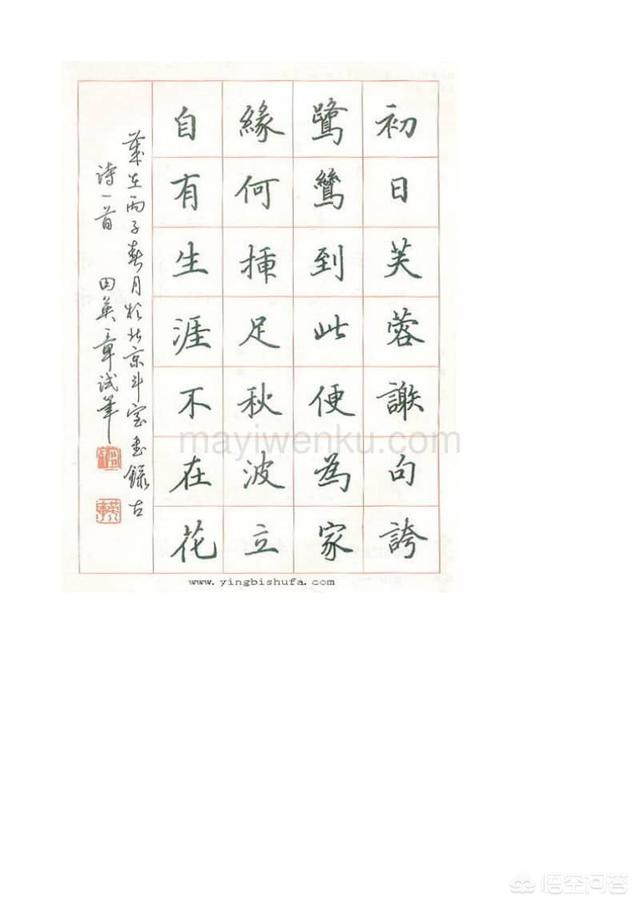 初日芙蓉謝句誇
鷺鷥到此便為家
緣何插足秋波立
自有生涯不在花
歲在丙子春月於北京斗室书錄古
诗一首 田英章试筆
mayiwenku.com
www.yingbishufa.com
悟空问答